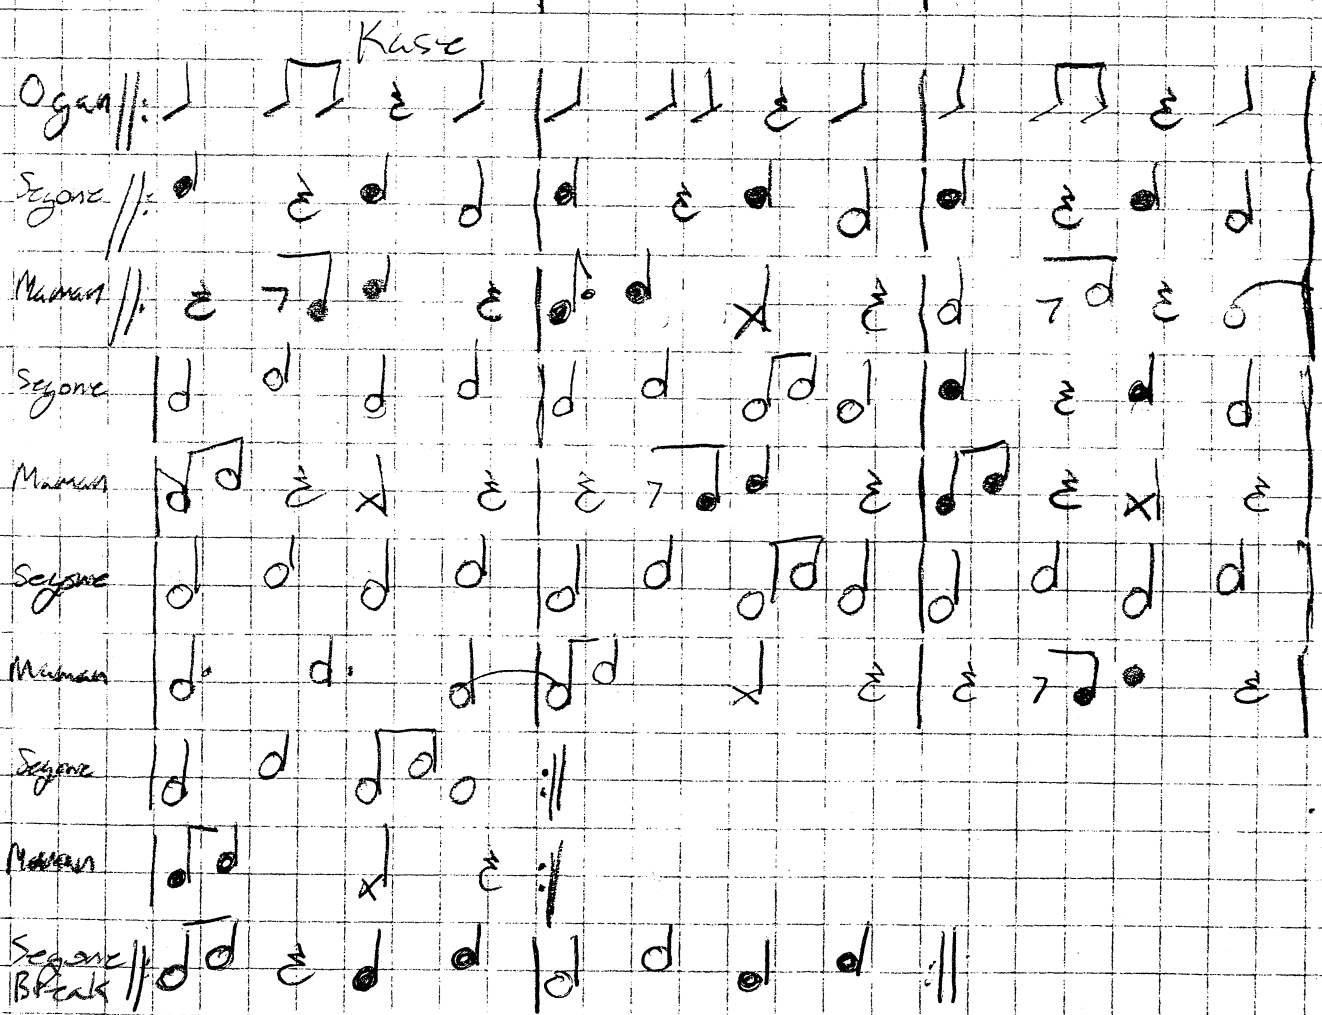 Kase
Ogan
Segone
Maman
Segone
Maman
Segone
Maman
Segone
Maman
Segone
Break